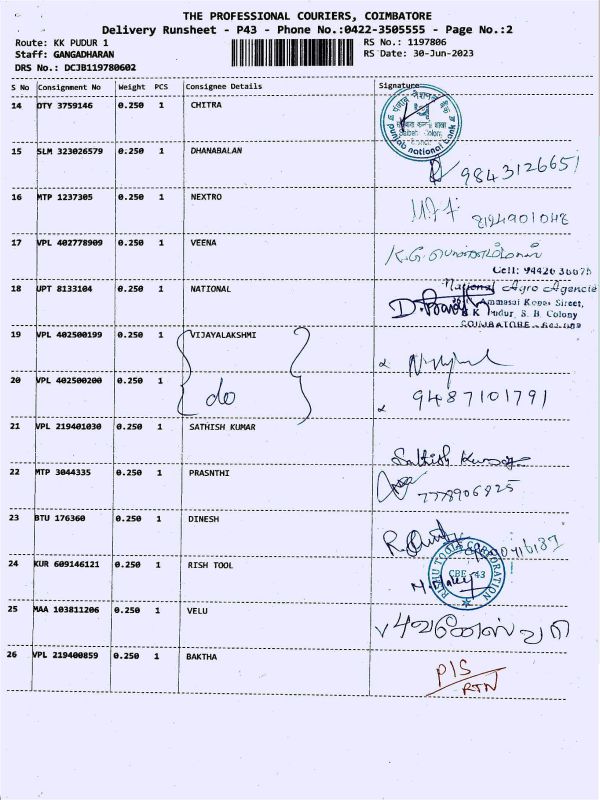 THE PROFESSIONAL COURIERS, COIMBATORE
Delivery Runsheet - P43 - Phone No.:0422-3505555 - Page No.:2
Route: KK PUDUR 1 RS No.: 1197806
Staff: GANGADHARAN RS Date: 30-Jun-2023
DRS No.: DCJB119780602
S No Consignment No Weight PCS Consignee Details Signature
14 DTY 3759146 0.250 1 CHITRA
punjab national bank
15 SLM 323026579 0.250 1 DHANABALAN
9843126651
16 MTP 1237305 0.250 1 NEXTRO
8124901048
17 VPL 402778909 0.250 1 VEENA
K.G.
Cell: 94426 36675
18 UPT 8133104 0.250 1 NATIONAL
National Agro Agencie
Ammasai Konar Street,
K K Pudur, S. B. Colony
COIMBATORE
19 VPL 402500199 0.250 1 VIJAYALAKSHMI
20 VPL 402500200 0.250 1 do
9487101791
21 VPL 219401030 0.250 1 SATHISH KUMAR
Sathish Kumar
22 MTP 3044335 0.250 1 PRASNTHI
7778906825
23 BTU 176360 0.250 1 DINESH
24 KUR 609146121 0.250 1 RISH TOOL
TOOLS CORPORATION
CBE 43
25 MAA 103811206 0.250 1 VELU
26 VPL 219400859 0.250 1 BAKTHA
P/S
RTN